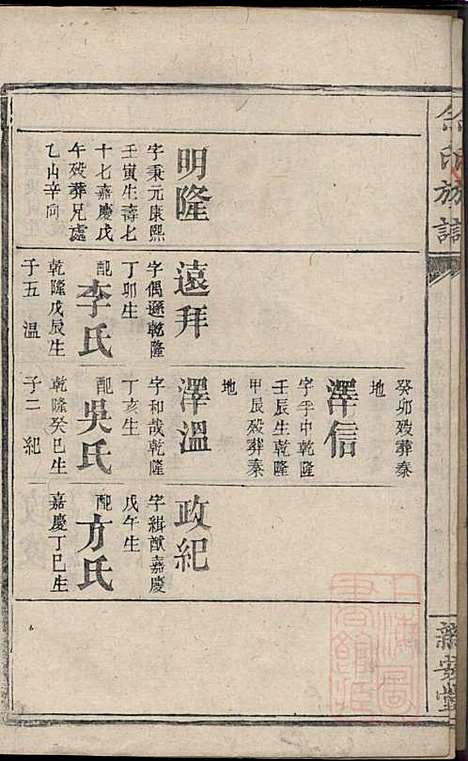 明隆
字秉元康熙
壬寅生壽七
十七嘉慶戊
午殁葬兄處
乙山辛向
遠拜
字偶遜乾隆
丁卯生
配
李氏
乾隆戊辰生
子五 溫
癸卯殁葬秦
地
澤信
字孚中乾隆
壬辰生乾隆
甲辰殁葬秦
地
澤溫
字和哉乾隆
丁亥生
配
吳氏
乾隆癸巳生
子二 紀
政紀
字緝猷嘉慶
戊午生
配
方氏
嘉慶丁巳生
氏族譜
新安堂
上海圖
書館藏